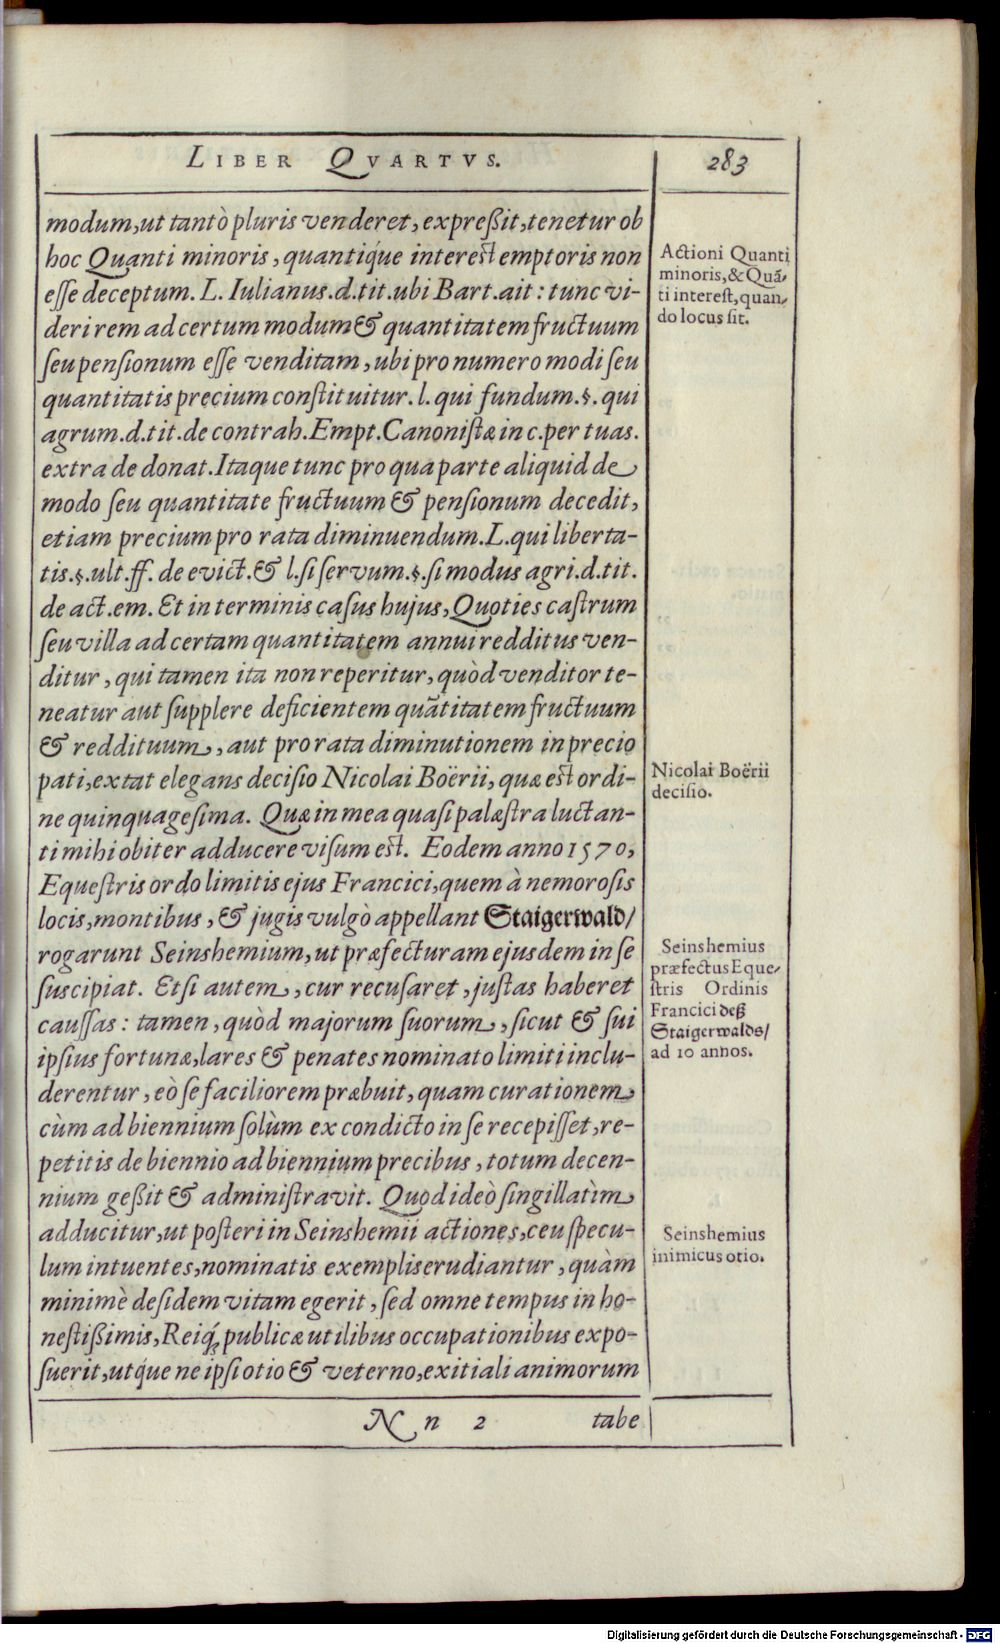 LIBER QVARTVS.
283
modum, ut tantò pluris venderet, expreßit, tenetur ob
hoc Quanti minoris, quantiq́ue interest emptoris non
eſſe deceptum. L. Iulianus. d. tit. ubi Bart. ait: tunc vi-
deri rem ad certum modum & quantitatem fructuum
ſeu penſionum eſſe venditam, ubi pro numero modi ſeu
quantitatis precium conſtituitur. l. qui fundum. §. qui
agrum. d. tit. de contrah. Empt. Canoniſtæ in c. per tuas.
extra de donat. Itaque tunc pro qua parte aliquid de
modo ſeu quantitate fructuum & penſionum decedit,
etiam precium pro rata diminuendum. L. qui liberta-
tis. §. ult. ff. de evict. & l. ſi ſervum. §. ſi modus agri. d. tit.
de act. em. Et in terminis caſus hujus, Quoties caſtrum
ſeu villa ad certam quantitatem annui redditus ven-
ditur, qui tamen ita non reperitur, quòd venditor te-
neatur aut ſupplere deficientem quãtitatem fructuum
& reddituum, aut pro rata diminutionem in precio
pati, extat elegans deciſio Nicolai Boërii, quæ est ordi-
ne quinquageſima. Quæ in mea quaſi palæſtra luctan-
ti mihi obiter adducere viſum est. Eodem anno 1570,
Equeſtris ordo limitis ejus Francici, quem à nemoroſis
locis, montibus, & jugis vulgò appellant Staigerwald/
rogarunt Seinshemium, ut præfecturam ejusdem in ſe
ſuscipiat. Etſi autem, cur recuſaret, juſtas haberet
cauſſas: tamen, quòd majorum ſuorum, ſicut & ſui
ipſius fortunæ, lares & penates nominato limiti inclu-
derentur, eò ſe faciliorem præbuit, quam curationem
cùm ad biennium ſolùm ex condicto in ſe recepiſſet, re-
petitis de biennio ad biennium precibus, totum decen-
nium geßit & adminiſtravit. Quod ideò ſingillatìm
adducitur, ut poſteri in Seinshemii actiones, ceu ſpecu-
lum intuentes, nominatis exemplis erudiantur, quàm
minimè deſidem vitam egerit, ſed omne tempus in ho-
neſtißimis, Reiq́; publicæ utilibus occupationibus expo-
ſuerit, utq́ue ne ipſi otio & veterno, exitiali animorum
N n 2
tabe
Actioni Quanti
minoris, & Quã-
ti intereſt, quan-
do locus ſit.
Nicolai Boërii
deciſio.
Seinshemius
præfectus Eque-
ſtris Ordinis
Francici deß
Staigerwalds/
ad 10 annos.
Seinshemius
inimicus otio.
Digitalisierung gefördert durch die Deutsche Forschungsgemeinschaft - DFG